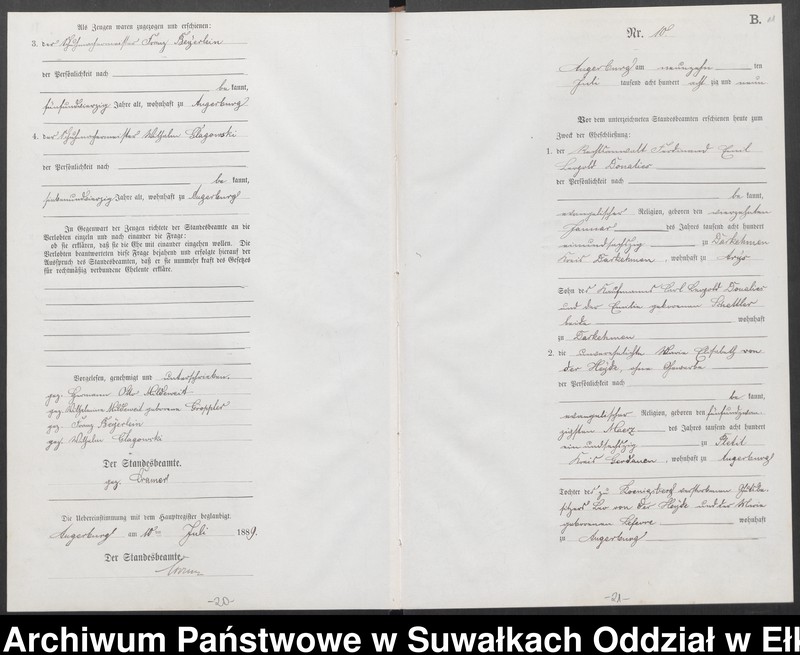 Als Zeugen waren zugezogen und erschienen:
3. der Schuhmachermeister Franz Beyerlein
der Persönlichkeit nach
be kannt,
fünfundvierzig Jahre alt, wohnhaft zu Angerburg
4. der Schuhmachermeister Wilhelm Glagowski
der Persönlichkeit nach
be kannt,
siebenundvierzig Jahre alt, wohnhaft zu Angerburg
In Gegenwart der Zeugen richtete der Standesbeamte an die
Verlobten einzeln und nach einander die Frage:
ob sie erklären, daß sie die Ehe mit einander eingehen wollen. Die
Verlobten beantworteten diese Frage bejahend und erfolgte hierauf der
Ausspruch des Standesbeamten, daß er sie nunmehr kraft des Gesetzes
für rechtmäßig verbundene Eheleute erkläre.
Vorgelesen, genehmigt und unterschrieben.
gez. Hermann Otto Milbeweit
gez. Wilhelmine Milbeweit geborene Groppler
gez. Franz Beyerlein
gez. Wilhelm Glagowski
Der Standesbeamte.
gez. Kramer
Die Uebereinstimmung mit dem Hauptregister beglaubigt.
Angerburg am 10ten Juli 1889.
Der Standesbeamte
-20-
B.
Nr. 10
Angerburg am neunzehn ten
Juli tausend acht hundert acht zig und neun
Vor dem unterzeichneten Standesbeamten erschienen heute zum
Zweck der Eheschließung:
1. der Rechtsanwalt Ferdinand Emil
Leopold Donalies
der Persönlichkeit nach
be kannt,
evangelischer Religion, geboren den vierzehnten
Januar des Jahres tausend acht hundert
einundsechszig zu Darkehmen
Kreis Darkehmen, wohnhaft zu Arys
Sohn des Kaufmanns Carl Leopold Donalies
und der Emilie geborenen Schettler
beide wohnhaft
zu Darkehmen
2. die unverehelichte Marie Elisabeth von
der Heyde, ohne Gewerbe
der Persönlichkeit nach
be kannt,
evangelischer Religion, geboren den fünfundzwan
zigsten Maerz des Jahres tausend acht hundert
einundsechszig zu Pletit
Kreis Gerdauen, wohnhaft zu Angerburg
Tochter des zu Koenigsberg verstorbenen Gutsbe-
sitzers Leo von der Heyde und der Marie
geborenen Lefevre wohnhaft
zu Angerburg
-21-
Archiwum Państwowe w Suwałkach Oddział w Ełk